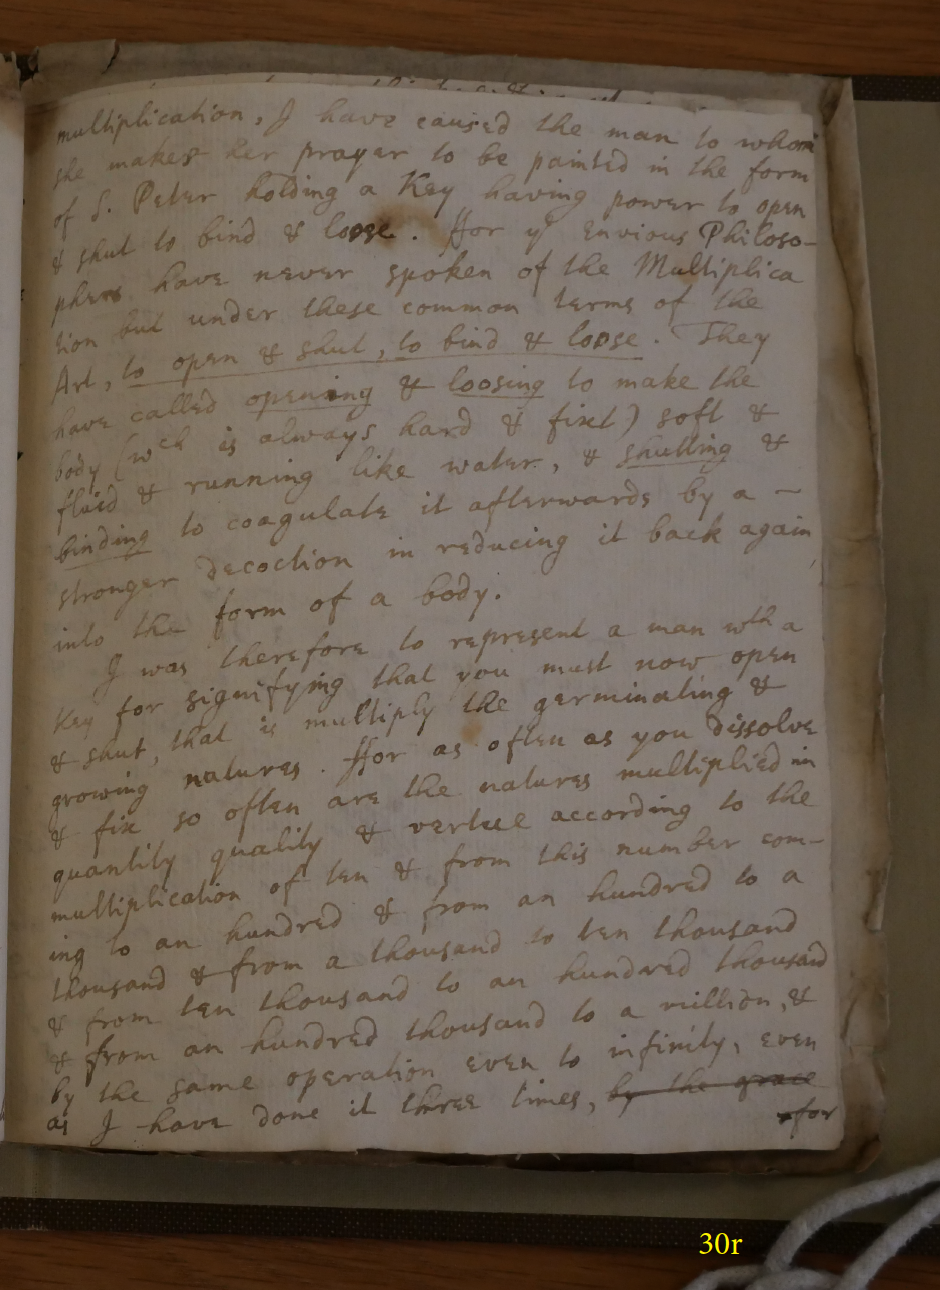 multiplication, I have caused the man to whom
she makes her prayer to be painted in the form
of S. Peter holding a Key having power to open
& shut to bind & loose. ffor ye Envious Philoso-
phers have never spoken of the Multiplica
tion but under these common terms of the
Art, to open & shut, to bind & loose. They
have called opening & loosing to make the
body (wch is always hard & fixt) soft &
fluid & running like water, & shutting &
binding to coagulate it afterwards by a ~
stronger decoction in reducing it back again
into the form of a body.
I was therefore to represent a man wth a
Key for signifying that you must now open
& shut, that is multiply the germinating &
growing natures. ffor as often as you dissolve
& fix so often are the natures multiplied in
quantity quality & vertue according to the
multiplication of ten & from this number com-
ing to an hundred & from an hundred to a
thousand & from a thousand to ten thousand
& from ten thousand to an hundred thousand
& from an hundred thousand to a million, &
by the same operation even to infinity, even
as I have done it three times, by the grace
for
30r